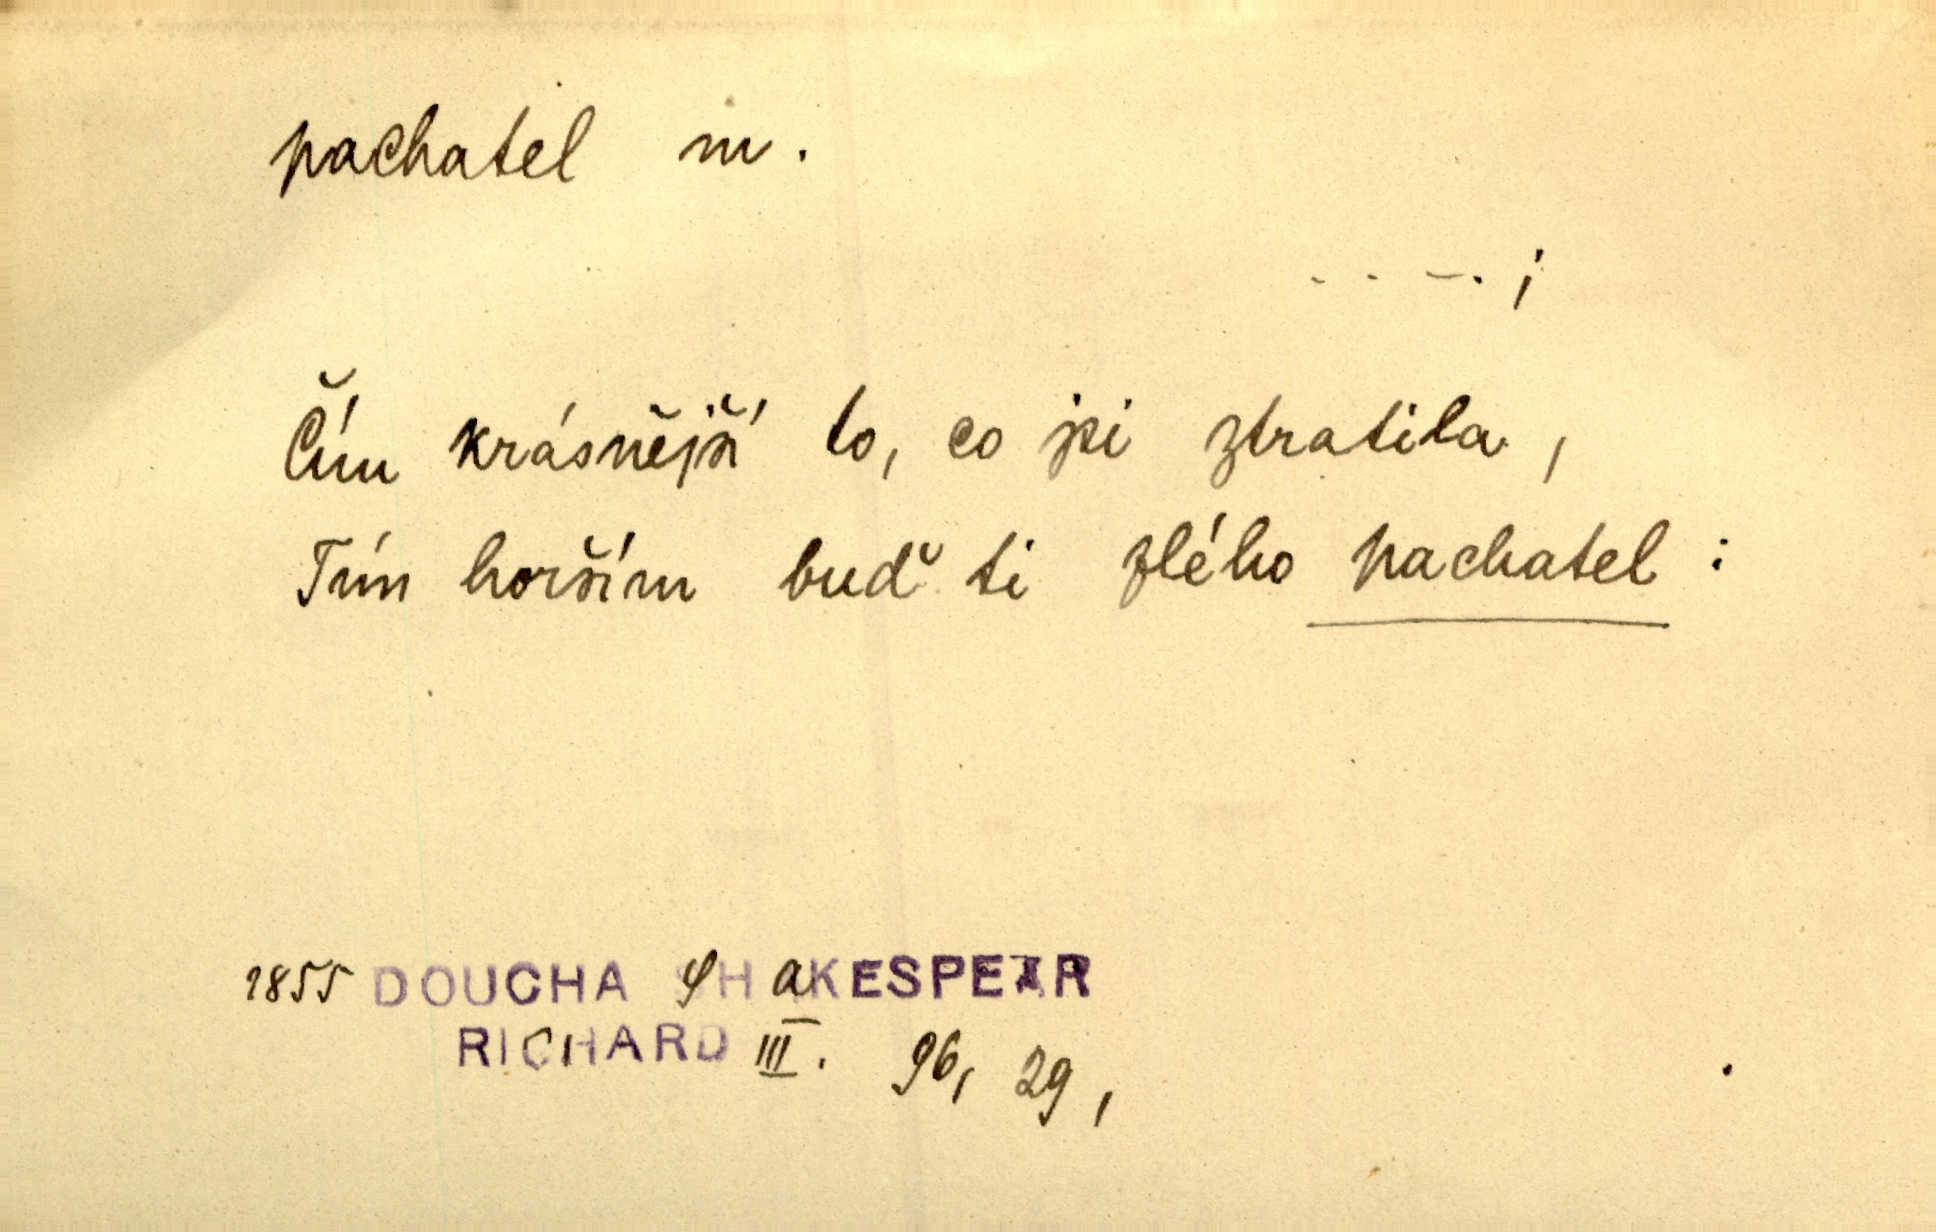 pachatel m.
. . – . ;
Čím krásnější to, co jsi ztratila,
Tím horším buď ti zlého pachatel:
1855 DOUCHA SHaKESPEAR
RICHARD III. 96, 29,